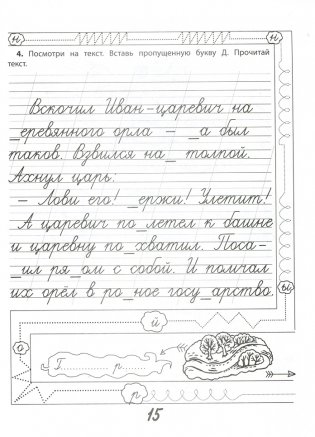 н н
4. Посмотри на текст. Вставь пропущенную букву Д. Прочитай
текст.
Вскочил Иван-царевич на
_еревянного орла – _а был
таков. Взвился на_ толпой.
Ахнул царь:
– Лови его! _ержи! Улетит!
А царевич по_летел к башне
и царевну по_хватил. Поса-
_ил ря_ом с собой. И помчал
их орёл в ро_ное госу_арство.
ы
й
о
Г р
р
15